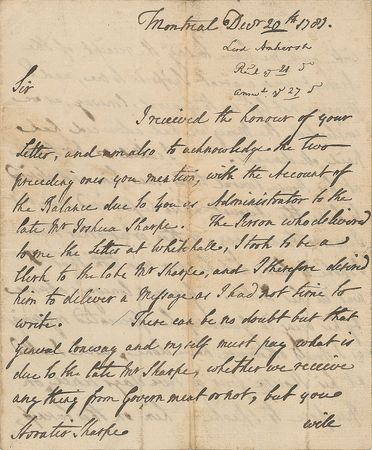 Montreal Decr 20th 1789.
Lord Amherst
Sir
I received the honour of your
Letter, and am also to acknowledge the two
preceding ones you mention, with the Account of
the Balance due to you as Administrator to the
late Mr Joshua Sharpe. The Person who delivered
to me the Letter at Whitehall, I took to be a
Clerk to the late Mr Sharpe, and I therefore desired
him to deliver a Message as I had not time to
write. There can be no doubt but that
General Conway and myself must pay what is
due to the late Mr Sharpe, whether we receive
any thing from Government or not, but you
Horatio Sharpe will